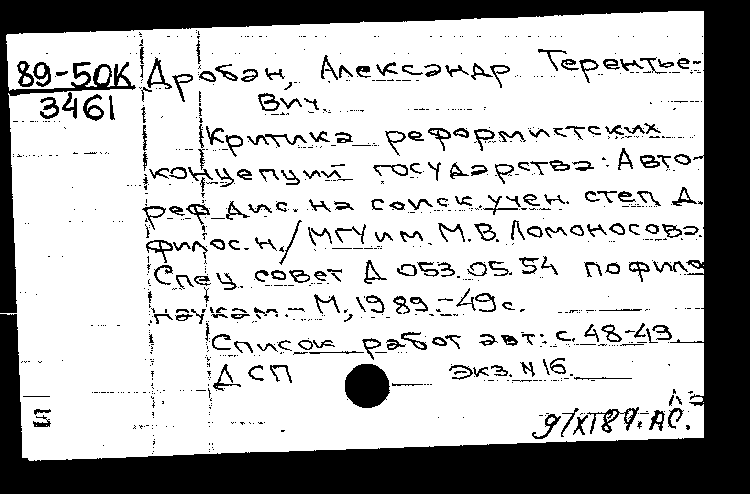 89-50К Дробан, Александр Терентье-
3461 вич.
Критика реформистских
концепций государства: Авто-
реф. дис. на соиск. учен. степ. д.
филос. н./МГУ им. М.В. Ломоносова.
Спец. совет Д 053.05.54 по филос
наукам. - М., 1989. - 49 с.
Список работ авт: с. 48-49.
ДСП Экз. N 16.
9/XI 89. АС.